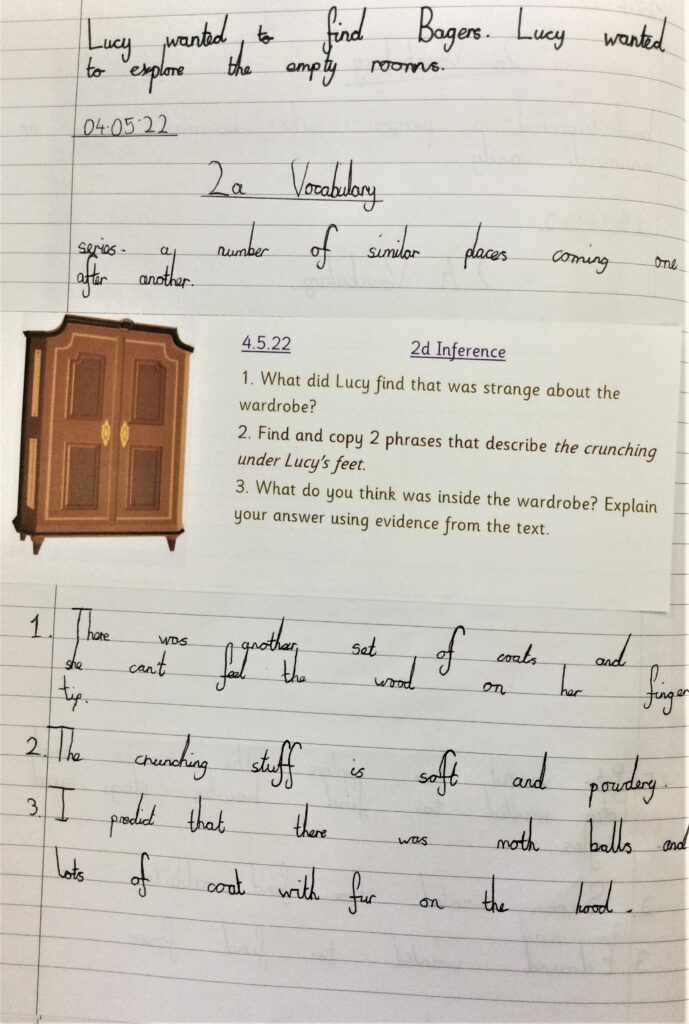 Lucy wanted to find Bagers. Lucy wanted
to explore the empty rooms.
04.05.22
2a Vocabulary
series - a number of similar places coming one
after another.
4.5.22 2d Inference
1. What did Lucy find that was strange about the
wardrobe?
2. Find and copy 2 phrases that describe the crunching
under Lucy's feet.
3. What do you think was inside the wardrobe? Explain
your answer using evidence from the text.
1. There was another set of coats and
she can't feel the wood on her finger
tip.
2. The crunching stuff is soft and powdery.
3. I predict that there was moth balls and
lots of coat with fur on the hood.